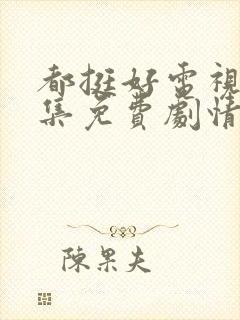 都挺好電視
集免費劇情
陳果夫